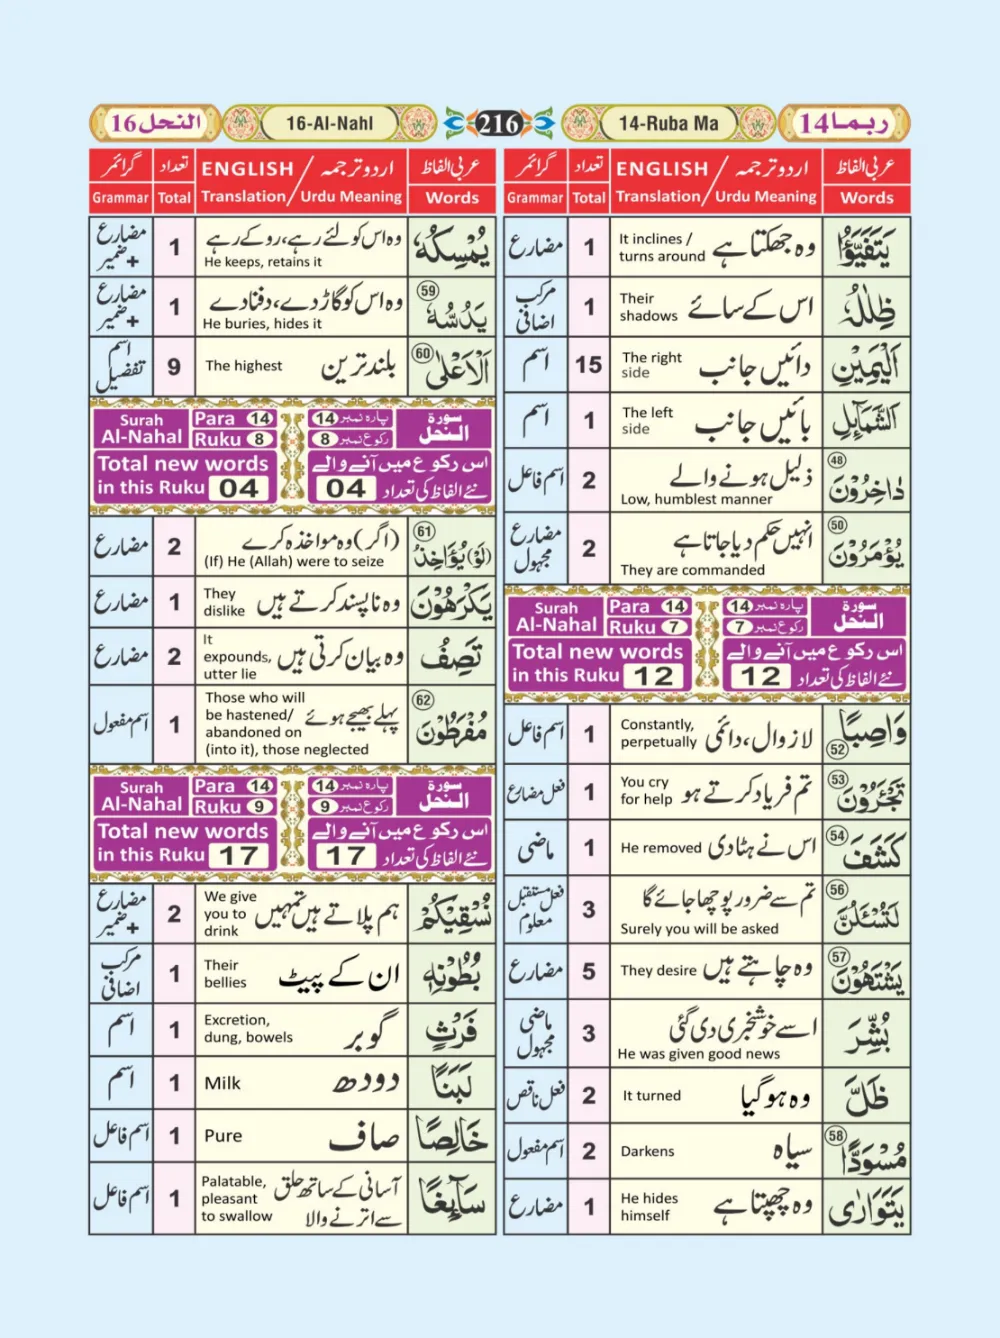 ربما 14
14-Ruba Ma
216
16-Al-Nahl
النحل 16
عربی الفاظ
اردو ترجمہ / ENGLISH
تعداد
گرائمر
Words
Translation / Urdu Meaning
Total
Grammar
يَتَفَيَّؤُا
وہ جھکتا ہے
It inclines /
turns around
1
مضارع
ظِلٰلُهٗ
اس کے سائے
Their
shadows
1
مرکب
اضافی
الْيَمِيْنِ
دائیں جانب
The right
side
15
اسم
الشَّمَآئِلِ
بائیں جانب
The left
side
1
اسم
48
دٰاخِرُوْنَ
ذلیل ہونے والے
Low, humblest manner
2
اسم فاعل
50
يُؤْمَرُوْنَ
انہیں حکم دیا جاتا ہے
They are commanded
2
مضارع
مجہول
Surah
Al-Nahal
Para 14
Ruku 7
14 پارہ نمبر
7 رکوع نمبر
سورة
النحل
Total new words
in this Ruku 12
اس رکوع میں آنے والے
نئے الفاظ کی تعداد 12
وَاصِبًا
52
لازوال، دائمی
Constantly,
perpetually
1
اسم فاعل
53
تَجْئَرُوْنَ
تم فریاد کرتے ہو
You cry
for help
1
فعل مضارع
54
كَشَفَ
اس نے ہٹا دی
He removed
1
ماضی
56
لَتُسْئَلُنَّ
تم سے ضرور پوچھا جائے گا
Surely you will be asked
3
فعل مستقبل
معلوم
57
يَشْتَهُوْنَ
وہ چاہتے ہیں
They desire
5
مضارع
بُشِّرَ
اسے خوشخبری دی گئی
He was given good news
3
ماضی
مجہول
ظَلَّ
وہ ہو گیا
It turned
2
فعل ناقص
58
مُسْوَدًّا
سیاہ
Darkens
2
اسم مفعول
يَتَوَارٰى
وہ چھپتا ہے
He hides
himself
1
مضارع
عربی الفاظ
اردو ترجمہ / ENGLISH
تعداد
گرائمر
Words
Translation / Urdu Meaning
Total
Grammar
يُمْسِكُهٗ
وہ اس کو لئے رہے، روکے رہے
He keeps, retains it
1
مضارع
+ ضمیر
59
يَدُسُّهٗ
وہ اس کو گاڑ دے، دفنا دے
He buries, hides it
1
مضارع
+ ضمیر
60
الْاَعْلٰى
بلند ترین
The highest
9
اسم
تفضیل
Surah
Al-Nahal
Para 14
Ruku 8
14 پارہ نمبر
8 رکوع نمبر
سورة
النحل
Total new words
in this Ruku 04
اس رکوع میں آنے والے
نئے الفاظ کی تعداد 04
61
(لَوْ) يُؤَاخِذُ
(اگر) وہ مواخذہ کرے
(If) He (Allah) were to seize
2
مضارع
يَكْرَهُوْنَ
وہ ناپسند کرتے ہیں
They
dislike
1
مضارع
تَصِفُ
وہ بیان کرتی ہیں
It
expounds,
utter lie
2
مضارع
62
مُفْرَطُوْنَ
پہلے بھیجے ہوئے
Those who will
be hastened/
abandoned on
(into it), those neglected
1
اسم مفعول
Surah
Al-Nahal
Para 14
Ruku 9
14 پارہ نمبر
9 رکوع نمبر
سورة
النحل
Total new words
in this Ruku 17
اس رکوع میں آنے والے
نئے الفاظ کی تعداد 17
نُسْقِيْكُمْ
ہم پلاتے ہیں تمہیں
We give
you to
drink
2
مضارع
+ ضمیر
بُطُوْنِهٖ
ان کے پیٹ
Their
bellies
1
مرکب
اضافی
فَرْثٍ
گوبر
Excretion,
dung, bowels
1
اسم
لَبَنًا
دودھ
Milk
1
اسم
خَالِصًا
صاف
Pure
1
اسم فاعل
سَآئِغًا
آسانی کے ساتھ حلق
سے اترنے والا
Palatable,
pleasant
to swallow
1
اسم فاعل